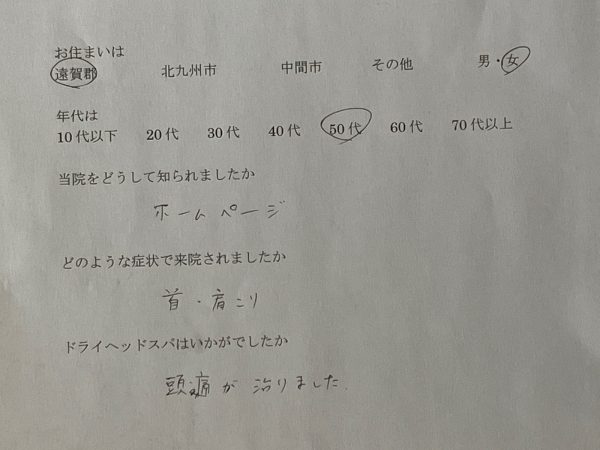 お住まいは
遠賀郡 北九州市 中間市 その他 男・女
年代は
10代以下 20代 30代 40代 50代 60代 70代以上
当院をどうして知られましたか
ホームページ
どのような症状で来院されましたか
首・肩こり
ドライヘッドスパはいかがでしたか
頭痛が治りました。